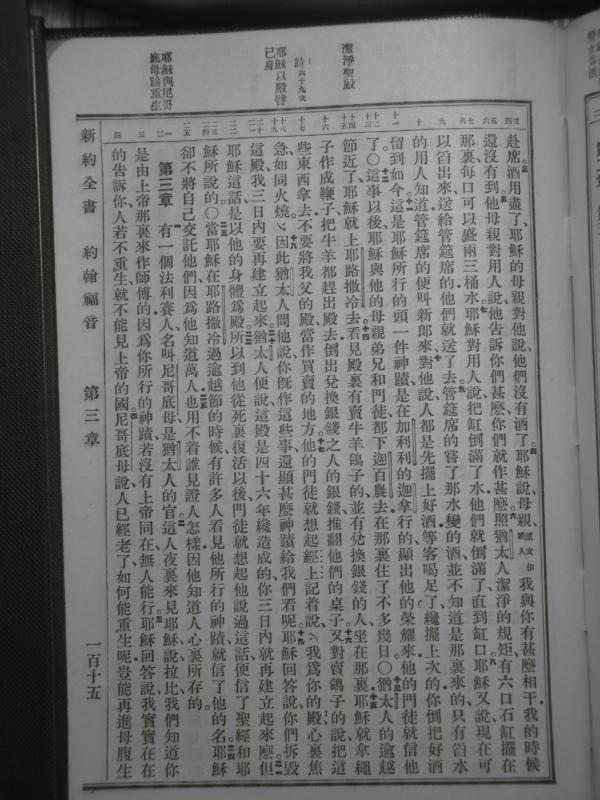 潔淨聖殿
詩六十九文
耶穌以殿譬
己身
耶穌與尼哥
底母論重生
赴席酒用盡了耶穌的母親對他說他們沒有酒了耶穌說母親原文作婦人我與你有甚麽相干我的時候
還沒有到他母親對用人說他告訴你們甚麽你們就作甚麽照猶太人潔淨的規矩有六口石缸擺在
那裏每口可以盛兩三桶水耶穌對用人說把缸倒滿了水他們就倒滿了直到缸口耶穌又說現在可
以舀出來送給管筵席的他們就送了去管筵席的嘗了那水變的酒並不知道是那裏來的只有舀水
的用人知道管筵席的便叫新郎來對他說人都是先擺上好酒等客喝足了纔擺上次的你倒把好酒
留到如今這是耶穌所行的頭一件神蹟是在加利利的迦拿行的顯出他的榮耀來他的門徒就信他
了〇這事以後耶穌與他的母親弟兄和門徒都下迦百農去在那裏住了不多幾日〇猶太人的逾越
節近了耶穌就上耶路撒冷去看見殿裏有賣牛羊鴿子的並有兌換銀錢的人坐在那裏耶穌就拿繩
子作成鞭子把牛羊都趕出殿去倒出兌換銀錢之人的銀錢推翻他們的桌子又對賣鴿子的說把這
些東西拿去不要將我父的殿當作買賣的地方他的門徒就想起經上記着說我爲你的殿心裏焦
急如同火燒因此猶太人問他說你旣作這些事還顯甚麽神蹟給我們看呢耶穌回答說你們拆毀
這殿我三日內要再建立起來猶太人便說這殿是四十六年纔造成的你三日內就再建立起來麽但
耶穌這話是以他的身體爲殿所以到他從死裏復活以後門徒就想起他說過這話便信了聖經和耶
穌所說的〇當耶穌在耶路撒冷過逾越節的時候有許多人看見他所行的神蹟就信了他的名耶穌
卻不將自己交託他們因爲他知道萬人也用不着誰見證人怎樣因他知道人心裏所存的
第三章 有一個法利賽人名叫尼哥底母是猶太人的官這人夜裏來見耶穌說拉比我們知道你
是由上帝那裏來作師傅的因爲你所行的神蹟若沒有上帝同在無人能行耶穌回答說我實實在在
的告訴你人若不重生就不能見上帝的國尼哥底母說人已經老了如何能重生呢豈能再進母腹生
新約全書 約翰福音 第三章 一百十五